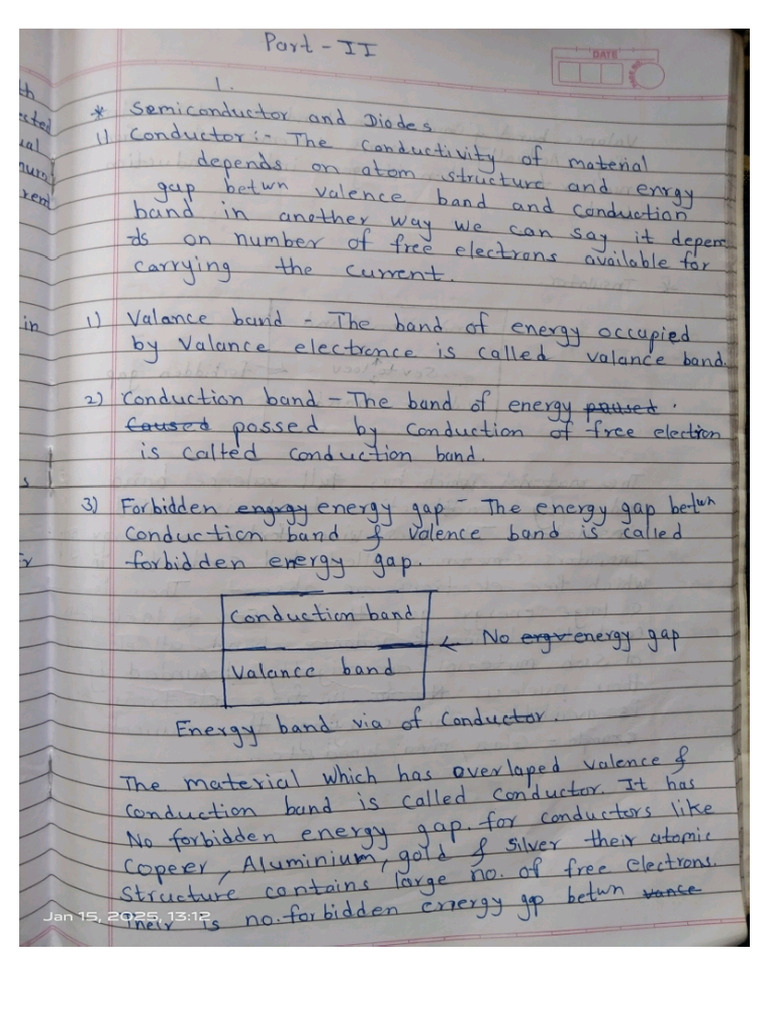 Part - II
DATE
1.
* Semiconductor and Diodes
1) Conductor:- The conductivity of material
depends on atom structure and enrgy
gap betwn valence band and conduction
band in another way we can say it depen
ds on number of free electrons available for
carrying the current.
1) Valance band - The band of energy occupied
by Valance electronce is called valance band.
2) Conduction band - The band of energy paused
Caused possed by conduction of free election
is callted conduction band.
3) Forbidden engrgy energy gap - The energy gap betwn
Conduction band & valence band is called
forbidden energy gap.
Conduction band
← No ergv energy gap
Valance band
Energy band via of Conductor.
The material which has overlaped valence &
conduction band is called conductor. It has
No forbidden energy gap. for conductors like
Copeer, Aluminium, gold & Silver their atomic
Structure contains large no. of free electrons.
Their is no. forbidden energy gp betwn vance
Jan 15, 2025, 13:12